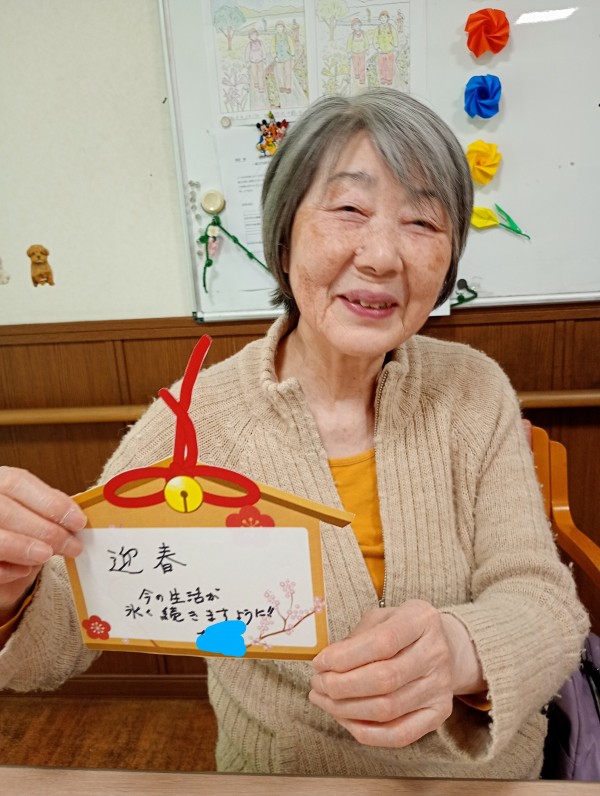 迎春
今の生活が
永く続きますように!!